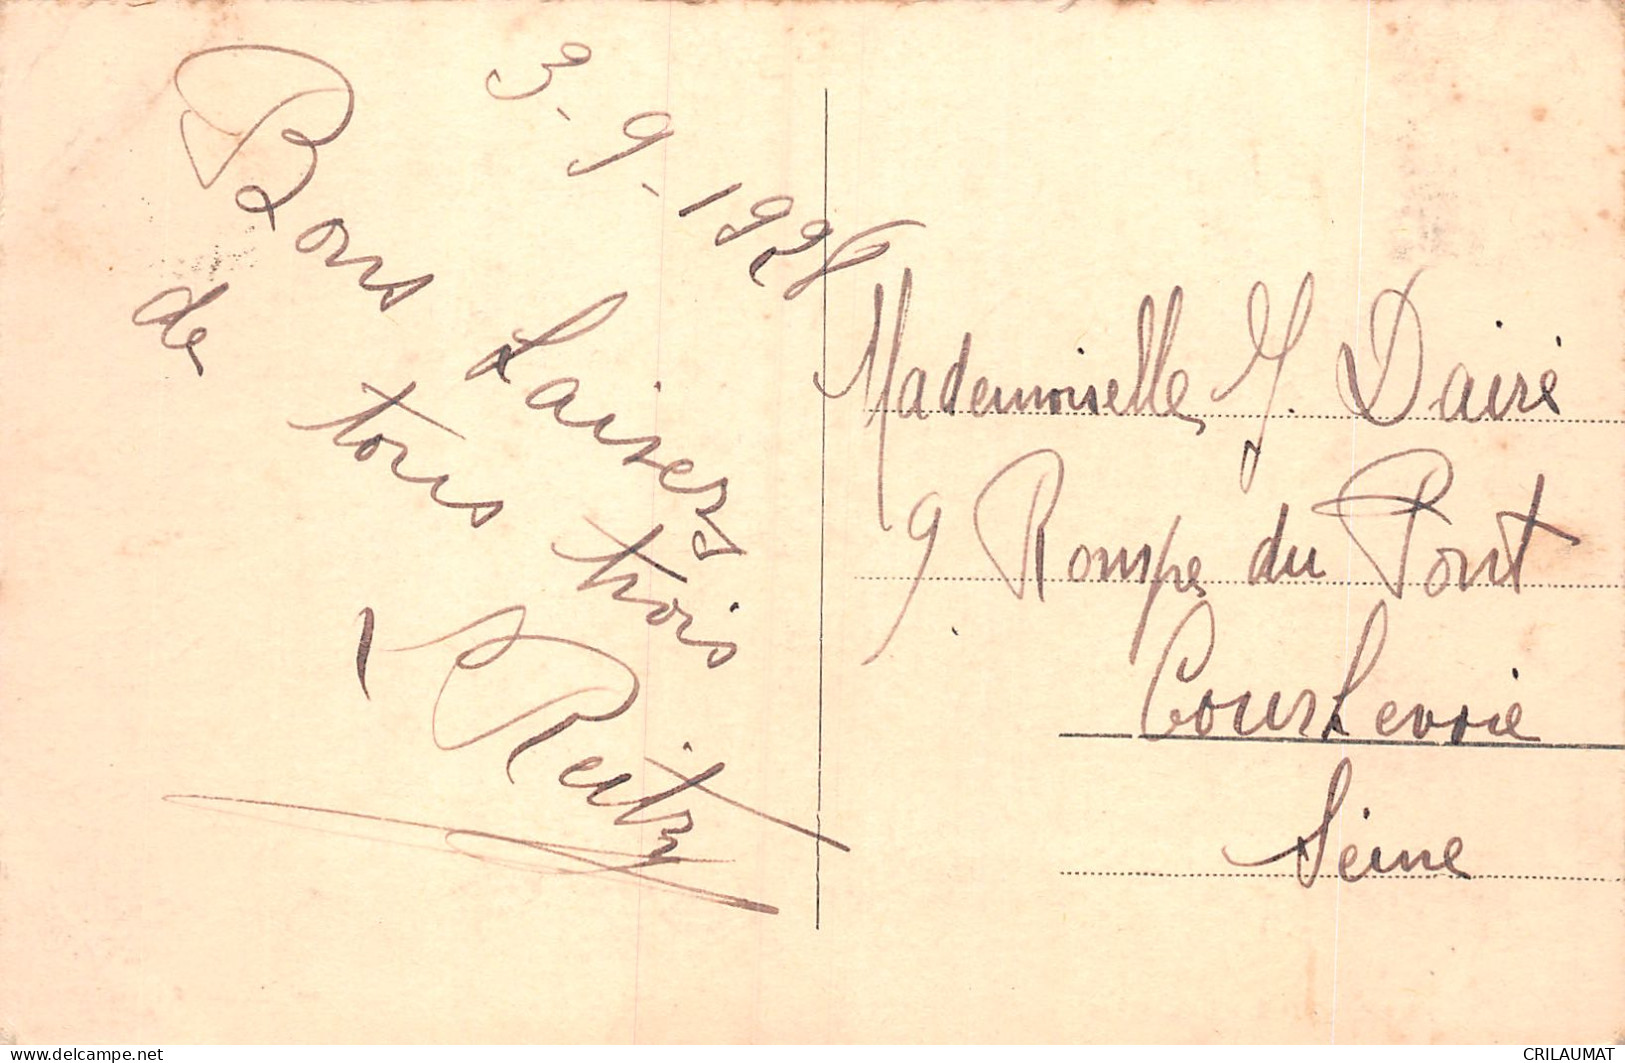 3-9-1928
Bons baisers
de tous trois
Reitz
Mademoiselle Y. Dairé
9 Rompe du Pont
Courbevoie
Seine
CRILAUMAT